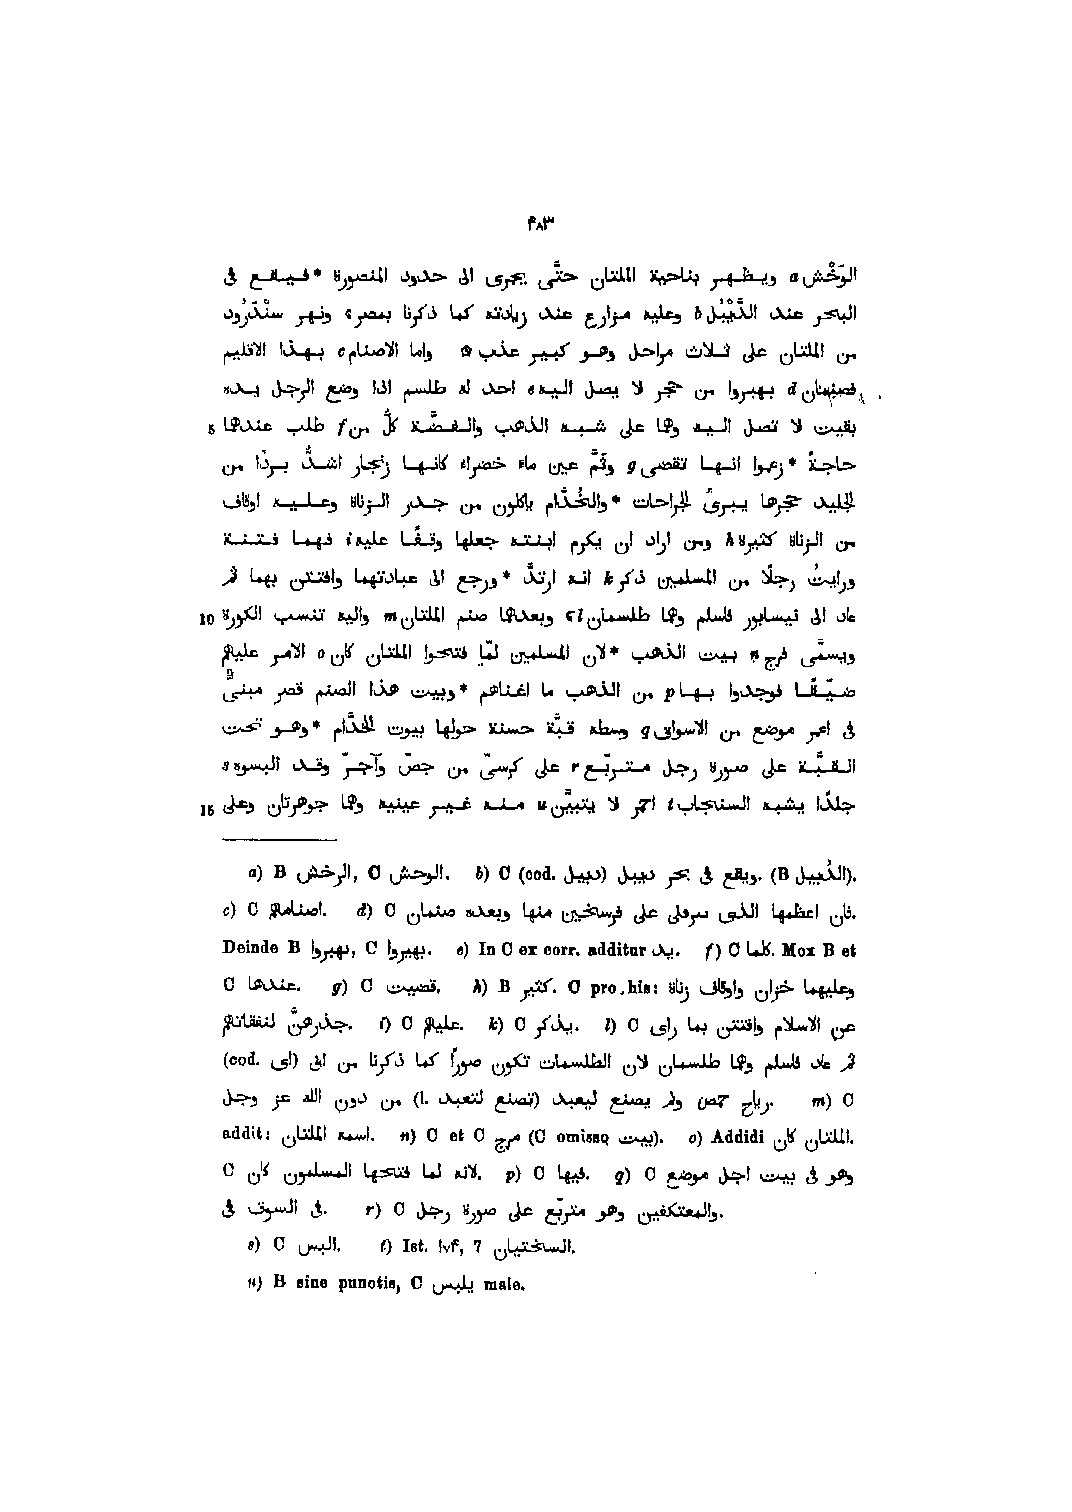 ٤٨٣
الوَخْش a ويظهر بناحية الملتان حتَّى يجرى الى حدود المنصورة *فيقع فى
البحر عند الدَّيْبُل b وعليه مزارع عند زيادته كما ذكرنا بمصر ونهر سنْدَرُود
من الملتان على ثلاث مراحل وهو كبير عذب ۞ واما الاصنام c بهذا الاقليم
فصنمان d بهبروا من حجر لا يصل اليه e احد له طلسم اذا وضع الرجل يده
بقيت لا تصل اليه وهما على شبه الذهب والفضّة كلُّ من f طلب عندهما 5
حاجةً *زعموا انها تقضى g وثَمَّ عين ماء خضراء كانها زنجار اشدُّ بردًا من
الجليد حجرها يبرئُ الجراحات *والخُدَّام ياكلون من جدر الزناة وعليه اوقاف
من الزناة كثيرة h ومن اراد ان يكرم ابنته جعلها وقفًا عليه i فهما فتنة
ورايتُ رجلًا من المسلمين ذكر k انه ارتدَّ *ورجع الى عبادتهما وافتتن بهما ثم
عاد الى نيسابور فاسلم وهما طلسمان l وبعدهما صنم الملتان m واليه تنسب الكورة 10
ويسمَّى فرج n بيت الذهب *لان المسلمين لمّا فتحوا الملتان كان o الامر عليهم
ضيّقًا فوجدوا بها p من الذهب ما اغناهم *وبيت هذا الصنم قصر مبنىّ
فى اعمر موضع من الاسواق q وسطه قبّة حسنة حولها بيوت الخدَّام *وهو تحت
القبَّة على صورة رجل متربّع r على كرسىّ من جصّ وآجرّ وقد البسوه s
جلدًا يشبه السنجاب t احمر لا يتبيَّن u منه غير عينيه وهما جوهرتان وعلى 15
a) B الرخش, C الوحش. b) C (cod. دبيل) ويقع فى بحر ديبل. (B الدُبيل).
c) C اصنامهم. d) C فان اعظمها الذى على فرسخين منها وبعده صنمان.
Deinde B بهبروا, C بهبروا. e) In C ex corr. additur يد. f) C كلما. Mox B et
C عندها. g) C قضيت. h) B كثير. C pro his: وعليهما خزان واوقاف زناة
جذرهنَّ لنفقاتهم. i) C عليهم. k) C يذكر. l) C عن الاسلام وافتتن بما راى
ثم عاد فاسلم وهما طلسمان لان الطلسمات تكون صورًا كما ذكرنا من الى (cod. اى)
رياح حمص ولم يصنع ليعبد (l. تصنع لتعبد) من دون الله عز وجل. m) C
addit: اسمه الملتان. n) C et C مرج (C omisso بيت). o) Addidi الملتان كان.
C لانه لما فتحها المسلمون كان. p) C فيها. q) C وهو فى بيت اجل موضع
فى السوق. r) C والمعتكفين وهو متربّع على صورة رجل.
s) C البس. t) Ist. ١٧٤, 7 السختيان.
u) B sine punctis, C يلبس male.